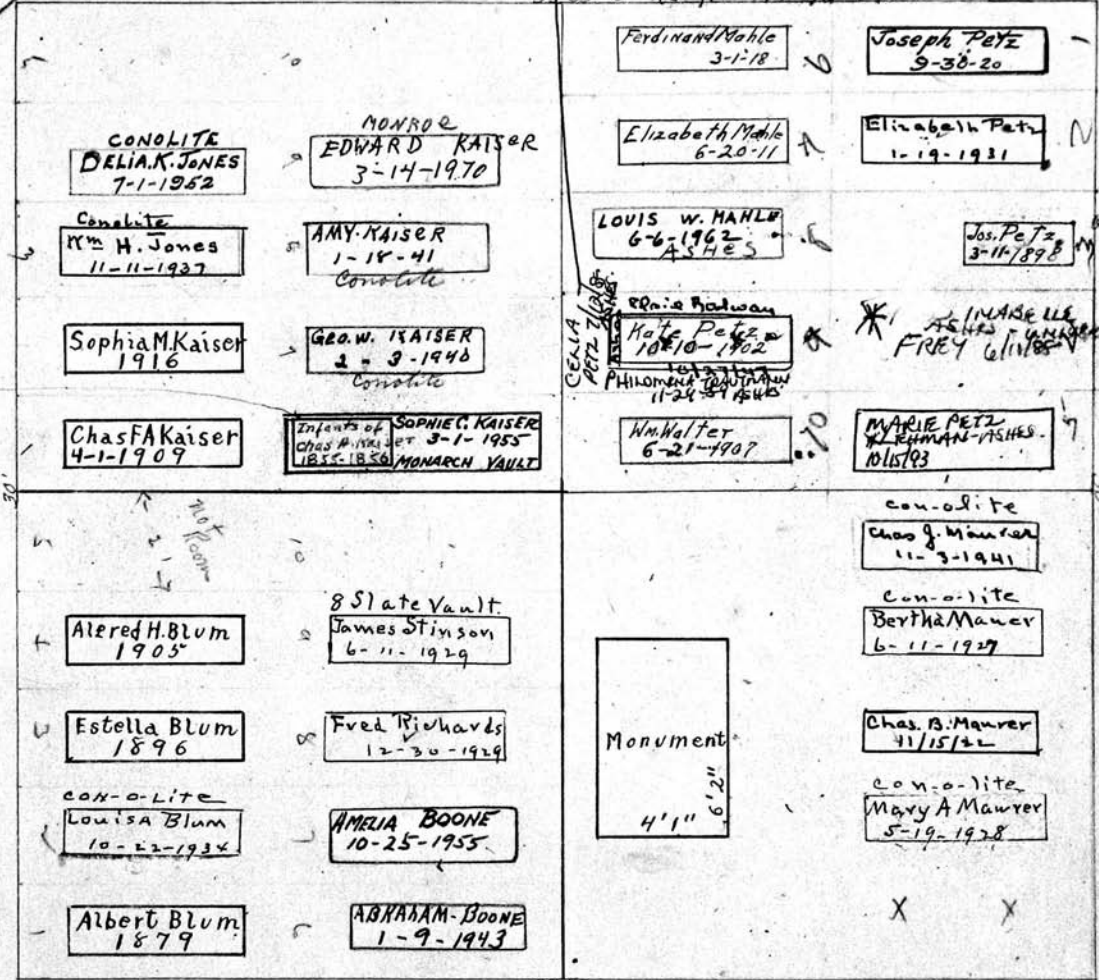 CONOLITE
DELIA.K.JONES
7-1-1952
Conolite
Wm H. Jones
11-11-1937
Sophia M.Kaiser
1916
Chas FA Kaiser
4-1-1909
MONROE
EDWARD KAISER
3-14-1970
AMY. KAISER
1-18-41
Conolite
GEO. W. KAISER
2-3-1940
Conolite
Infants of
Chas A. Kaiser
1855-1856
SOPHIE C. KAISER
3-1-1955
MONARCH VAULT
Ferdinand Mahle
3-1-18
6
Elizabeth Mahle
6-20-11
7
LOUIS W. MAHLE
6-6-1962
ASHES
8
CELIA
PETZ
ASHES
Kate Petz
10-10-1902
9
PHILOMENA TRAUTMANN
ASHES
Wm. Walter
6-21-1907
10
Joseph Petz
9-30-20
1
Elizabeth Petz
1-19-1931
2
Jos. Petz
3-11-1898
3
ASHES
FREY
MARIE PETZ
KLEHMAN-ASHES
10/15/93
5
30'
5
2
not Room
10
4
Alfred H. Blum
1905
3
Estella Blum
1896
CON-O-LITE
Louisa Blum
10-22-1934
1
Albert Blum
1879
8 Slate Vault
James Stinson
6-11-1929
9
Fred Richards
12-30-1929
8
AMELIA BOONE
10-25-1955
7
ABRAHAM-BOONE
1-9-1943
6
Monument
4'1"
6'2"
con-o-lite
Chas J. Maurer
11-3-1941
con-o-lite
Bertha Maurer
6-11-1927
Chas. B. Maurer
11/15/22
con-o-lite
Mary A Maurer
5-19-1928
X X